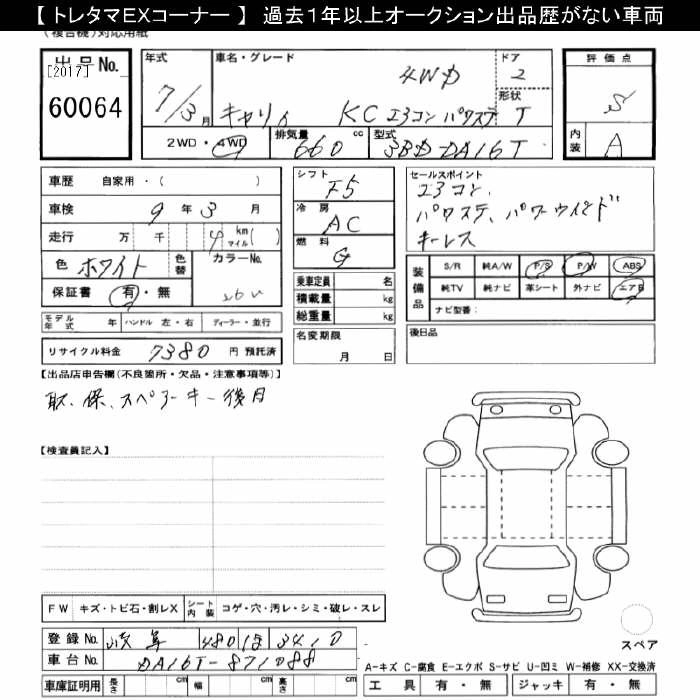 【 トレタマEXコーナー 】 過去1年以上オークション出品歴がない車両
(複合機)対応用紙
出 品 No.
[2017]
60064
年式
7/3月
車名・グレード
4WD
キャリイ KC エアコン パワステ
ドア
2
形状
T
評 価 点
S
内装
A
2WD・4WD
排気量
660 cc
型式
3BD-DA16T
車歴 自家用・( )
車検 9 年 3 月
走行 万 千 4 km マイル ( )
色 ホワイト
色替
カラーNo.
26U
保証書 有・無
モデル年式 年
ハンドル 左・右
ディーラー・並行
リサイクル料金 7380 円 預託済
シフト
F5
冷 房
AC
燃 料
G
乗車定員 名
積載量 kg
総重量 kg
名変期限
月 日
セールスポイント
エアコン、
パワステ、パワーウインド
キーレス
装備品
S/R 純A/W P/S P/W ABS
純TV 純ナビ 革シート 外ナビ エアB
ナビ型番:
後日品
【出品店申告欄(不良箇所・欠品・注意事項等)】
取、保、スペアーキー後日
【検査員記入】
FW キズ・トビ石・割レX
シート内装 コゲ・穴・汚レ・シミ・破レ・スレ
登録 No. 岐阜 480 ほ 3410
車台 No. DA16T-871088
車庫証明用 長さ cm 幅 cm 高さ cm
スペア
A-キズ C-腐食 E-エクボ S-サビ U-凹ミ W-補修 XX-交換済
工 具 有・無 ジャッキ 有・無